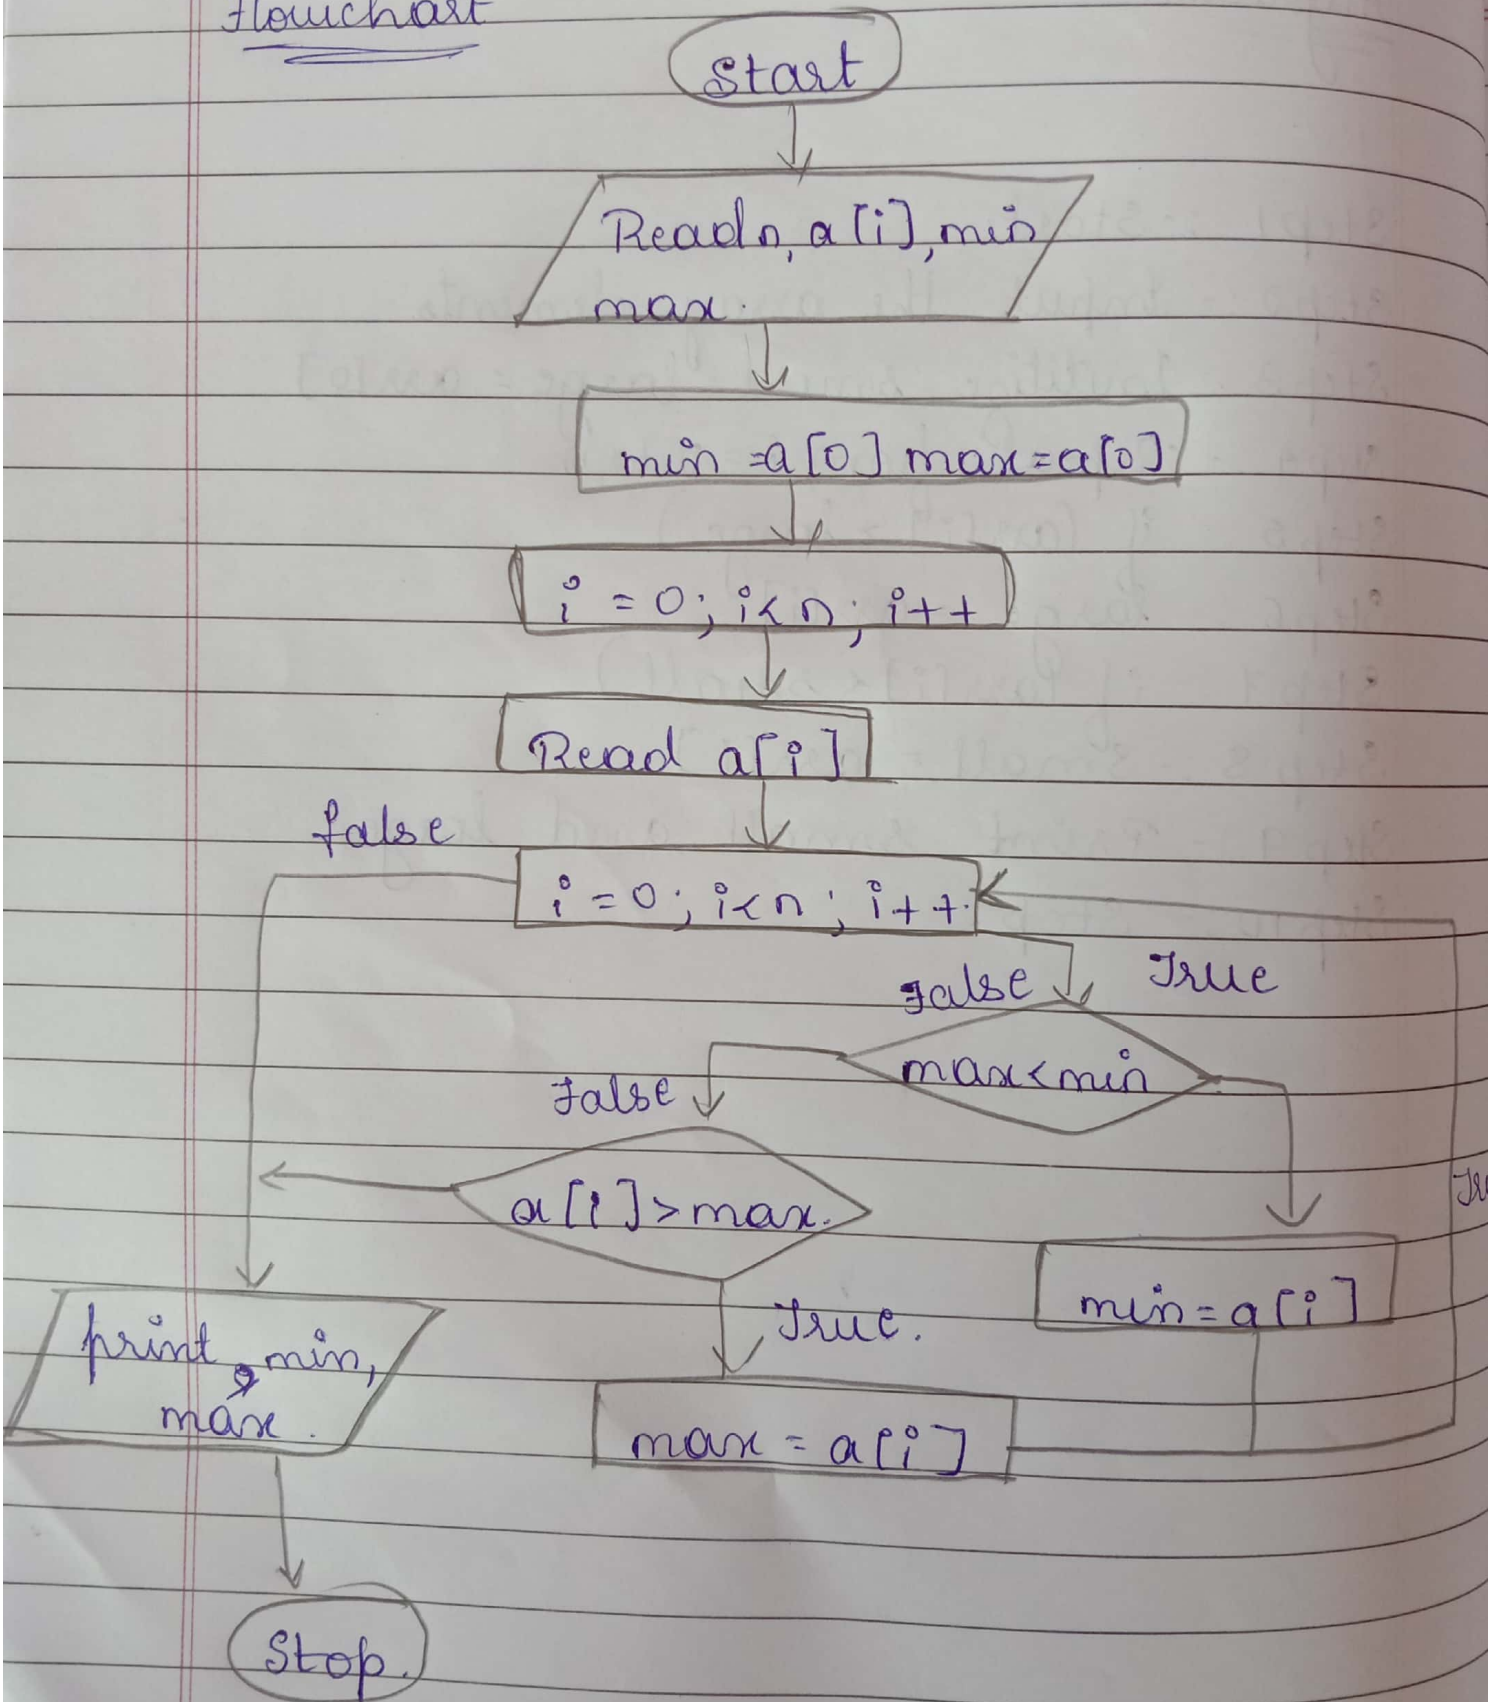 Flowchart
Start
Read n, a[i], min
max.
min = a[0] max = a[0]
i = 0; i < n; i++
Read a[i]
false
i = 0; i < n; i++.
False
True
max < min
False
a[i] > max.
min = a[i]
True.
print, min,
max.
max = a[i]
Stop.